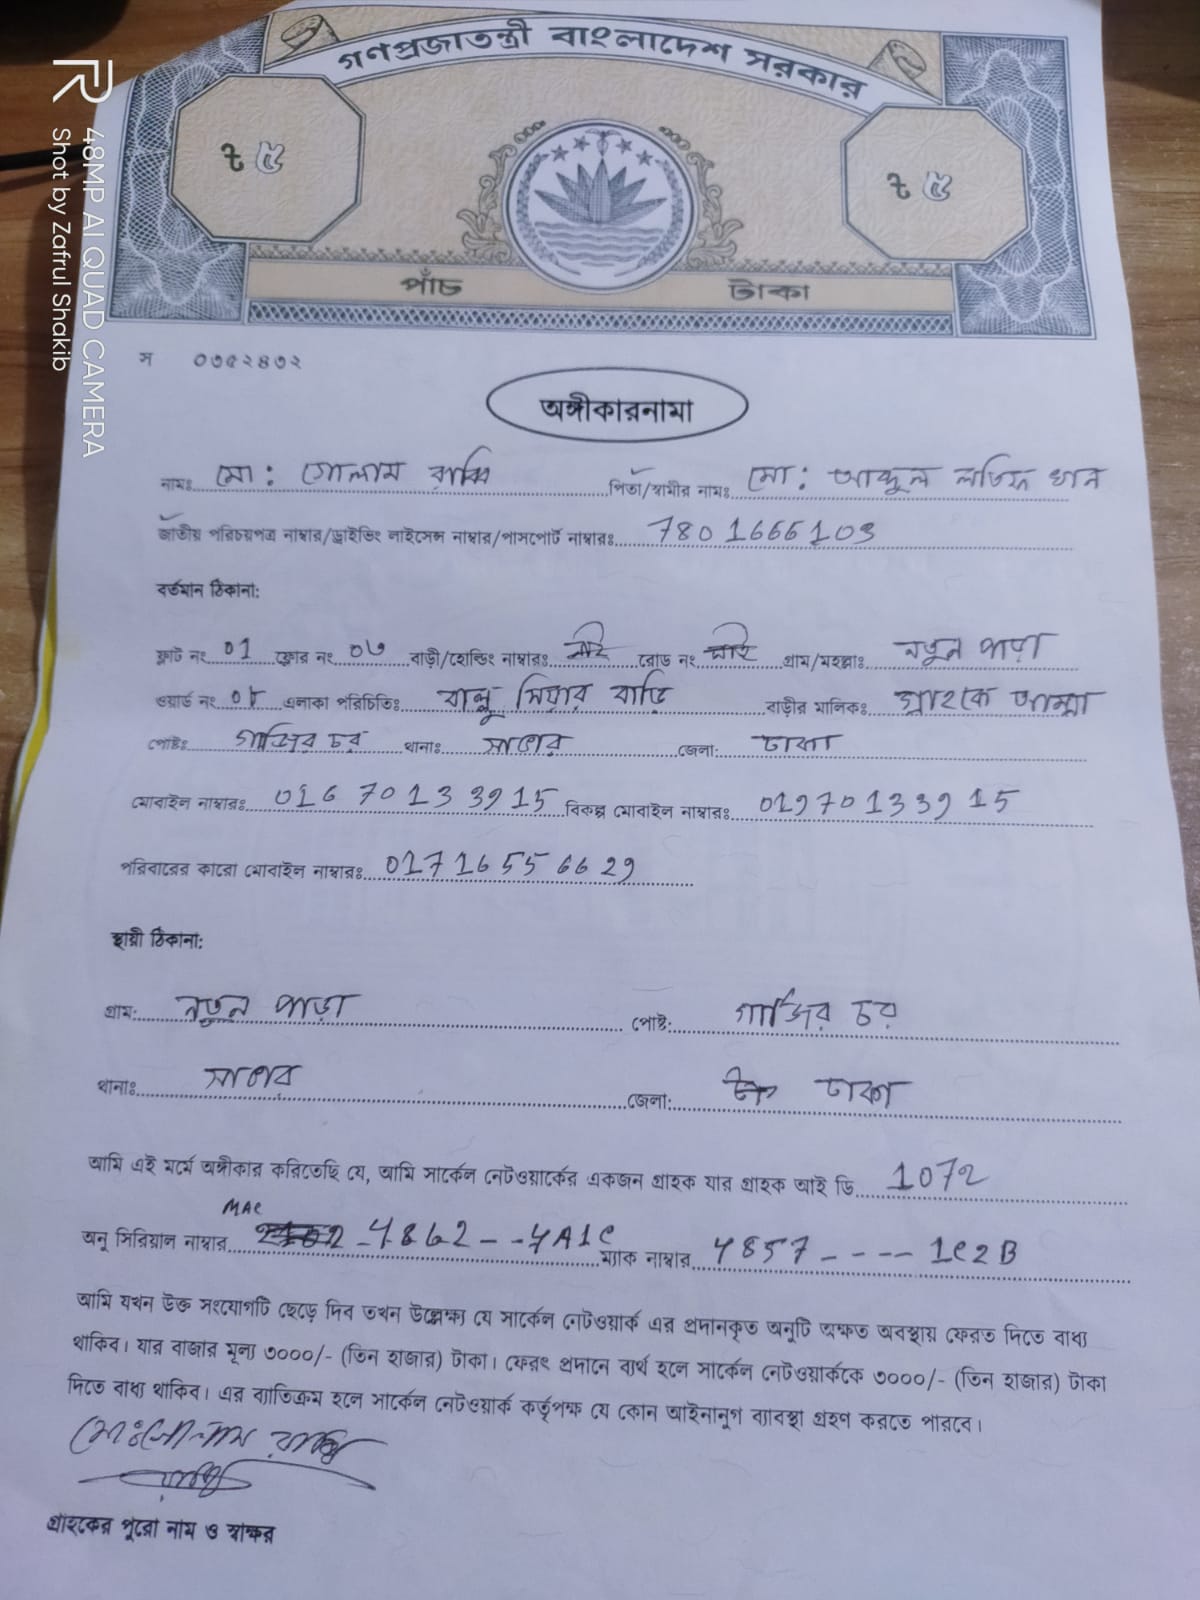 গণপ্রজাতন্ত্রী বাংলাদেশ সরকার
৳ ৫
৳ ৫
পাঁচ টাকা
48MP AI QUAD CAMERA
Shot by Zafrul Shakib
স ০৩৫২৪৩২
অঙ্গীকারনামা
নামঃ মো: গোলাম রাব্বি পিতা/স্বামীর নামঃ মো: আব্দুল লতিফ খান
জাতীয় পরিচয়পত্র নাম্বার/ড্রাইভিং লাইসেন্স নাম্বার/পাসপোর্ট নাম্বারঃ 7801666103
বর্তমান ঠিকানা:
ফ্লাট নং 01 ফ্লোর নং ০৩ বাড়ী/হোল্ডিং নাম্বারঃ নাই রোড নং নাই গ্রাম/মহল্লাঃ নতুন পাড়া
ওয়ার্ড নং ০৮ এলাকা পরিচিতিঃ বাল্লু মিয়ার বাড়ি বাড়ীর মালিকঃ গ্রাহকে আম্মা
পোষ্টঃ গাজির চর থানাঃ সাভার জেলা: ঢাকা
মোবাইল নাম্বারঃ 01670133915 বিকল্প মোবাইল নাম্বারঃ 01970133915
পরিবারের কারো মোবাইল নাম্বারঃ 01716556629
স্থায়ী ঠিকানা:
গ্রাম: নতুন পাড়া পোষ্ট: গাজির চর
থানাঃ সাভার জেলা: ঢাকা
আমি এই মর্মে অঙ্গীকার করিতেছি যে, আমি সার্কেল নেটওয়ার্কের একজন গ্রাহক যার গ্রাহক আই ডি 1072
MAC
অনু সিরিয়াল নাম্বার 4862--4A1C ম্যাক নাম্বার 4857----1C2B
আমি যখন উক্ত সংযোগটি ছেড়ে দিব তখন উল্লেক্ষ্য যে সার্কেল নেটওয়ার্ক এর প্রদানকৃত অনুটি অক্ষত অবস্থায় ফেরত দিতে বাধ্য
থাকিব। যার বাজার মূল্য ৩০০০/- (তিন হাজার) টাকা। ফেরৎ প্রদানে ব্যর্থ হলে সার্কেল নেটওয়ার্ককে ৩০০০/- (তিন হাজার) টাকা
দিতে বাধ্য থাকিব। এর ব্যাতিক্রম হলে সার্কেল নেটওয়ার্ক কর্তৃপক্ষ যে কোন আইনানুগ ব্যাবস্থা গ্রহণ করতে পারবে।
মোঃ গোলাম রাব্বি
গ্রাহকের পুরো নাম ও স্বাক্ষর